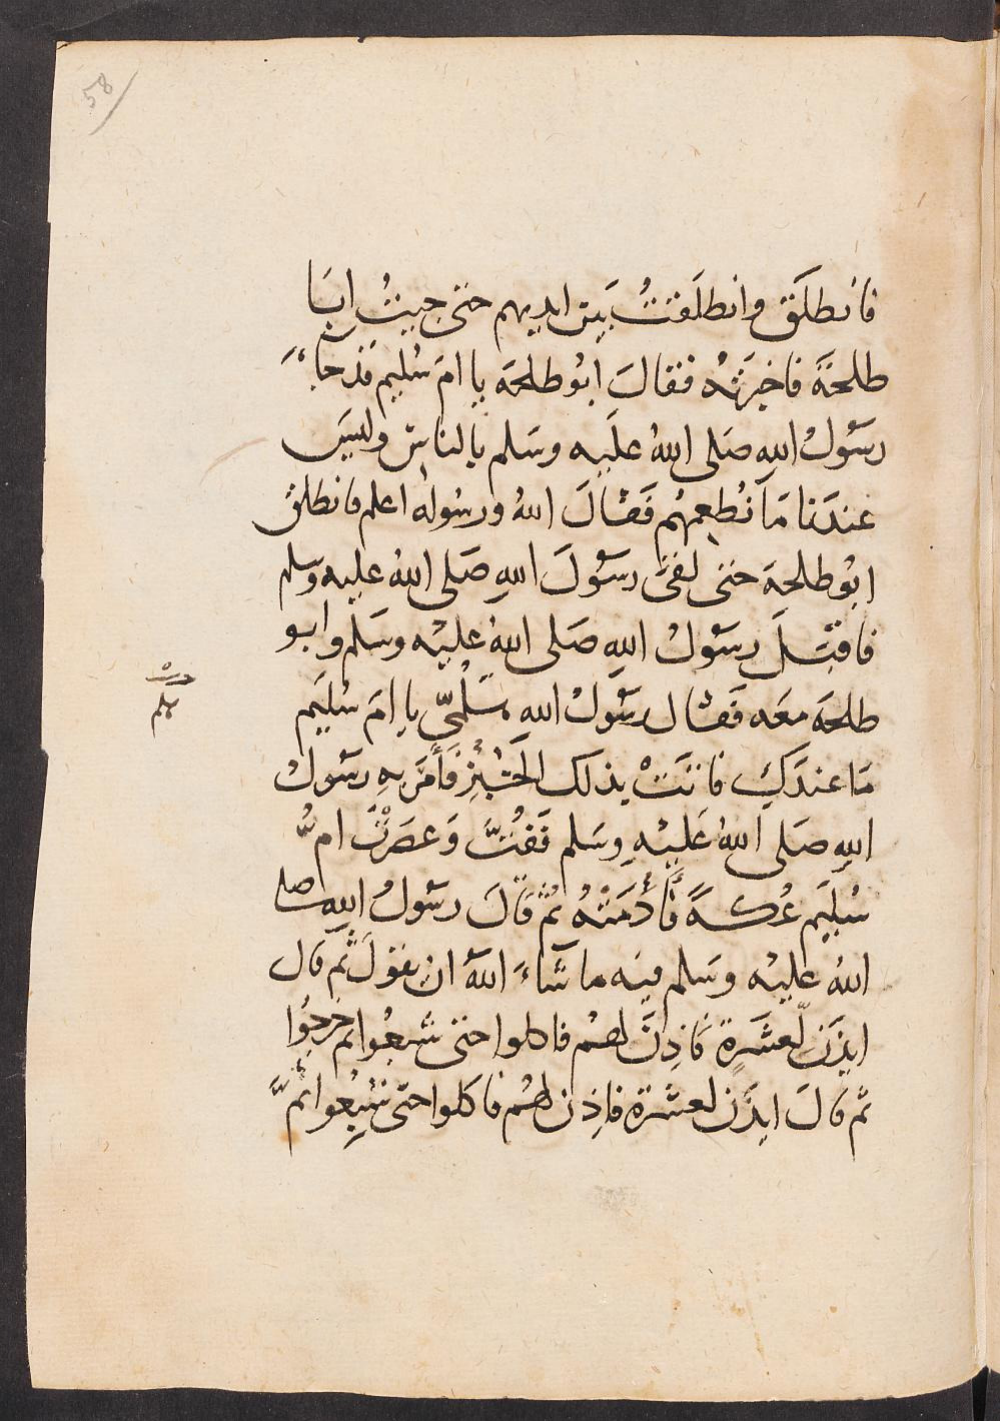 58
فانطلَق وانطلَقتُ بَين ايديهم حتى جيتُ ابَا
طلحةَ فاخبرَتُه فقالَ ابُو طلحَة يا امَ سُليم قد جاءَ
رسَوُلُ اللهِ صَلى اللهُ علَيه وسَلم بالناسِ وليسَ
عندَنا مَا نُطعِمهُم فَقالَ اللهُ ورسُولهُ اعلم فانطلقَ
ابُو طلحَة حتى لقىَ رسَوُلَ اللهِ صَلى اللهُ عليه وسلم
فاقبَلَ رسَوُلُ اللهِ صَلى اللهُ عليْه وسَلم وابو
طلحَة معَه فَقال رسَوُلُ اللهِ هَلُمّي يا امَ سُليَم
مَا عندَكِ فاتَتْ بذلك الخُبْزِ فَأَمَرَ بهِ رسَولُ
اللهِ صَلى اللهُ عَليْهِ وسَلم فَفُتَّ وَعصَرَتْ امُّ
سُليَم عُكةً فَأَدَمَتْهُ ثمَّ قالَ رسَولُ اللهِ صلى
اللهُ عليْه وسَلم فيه ما شَاءَ اللهُ ان يقولَ ثم قال
ايذَن لّعشَرةٍ فَاذِنَ لهمُ فاكلوا حتى شبعُوا ثم خرجُوا
ثم قالَ ايذَن لعشَرة فاذِن لهمُ فاكلوا حتى شبِعُوا ثمَّ